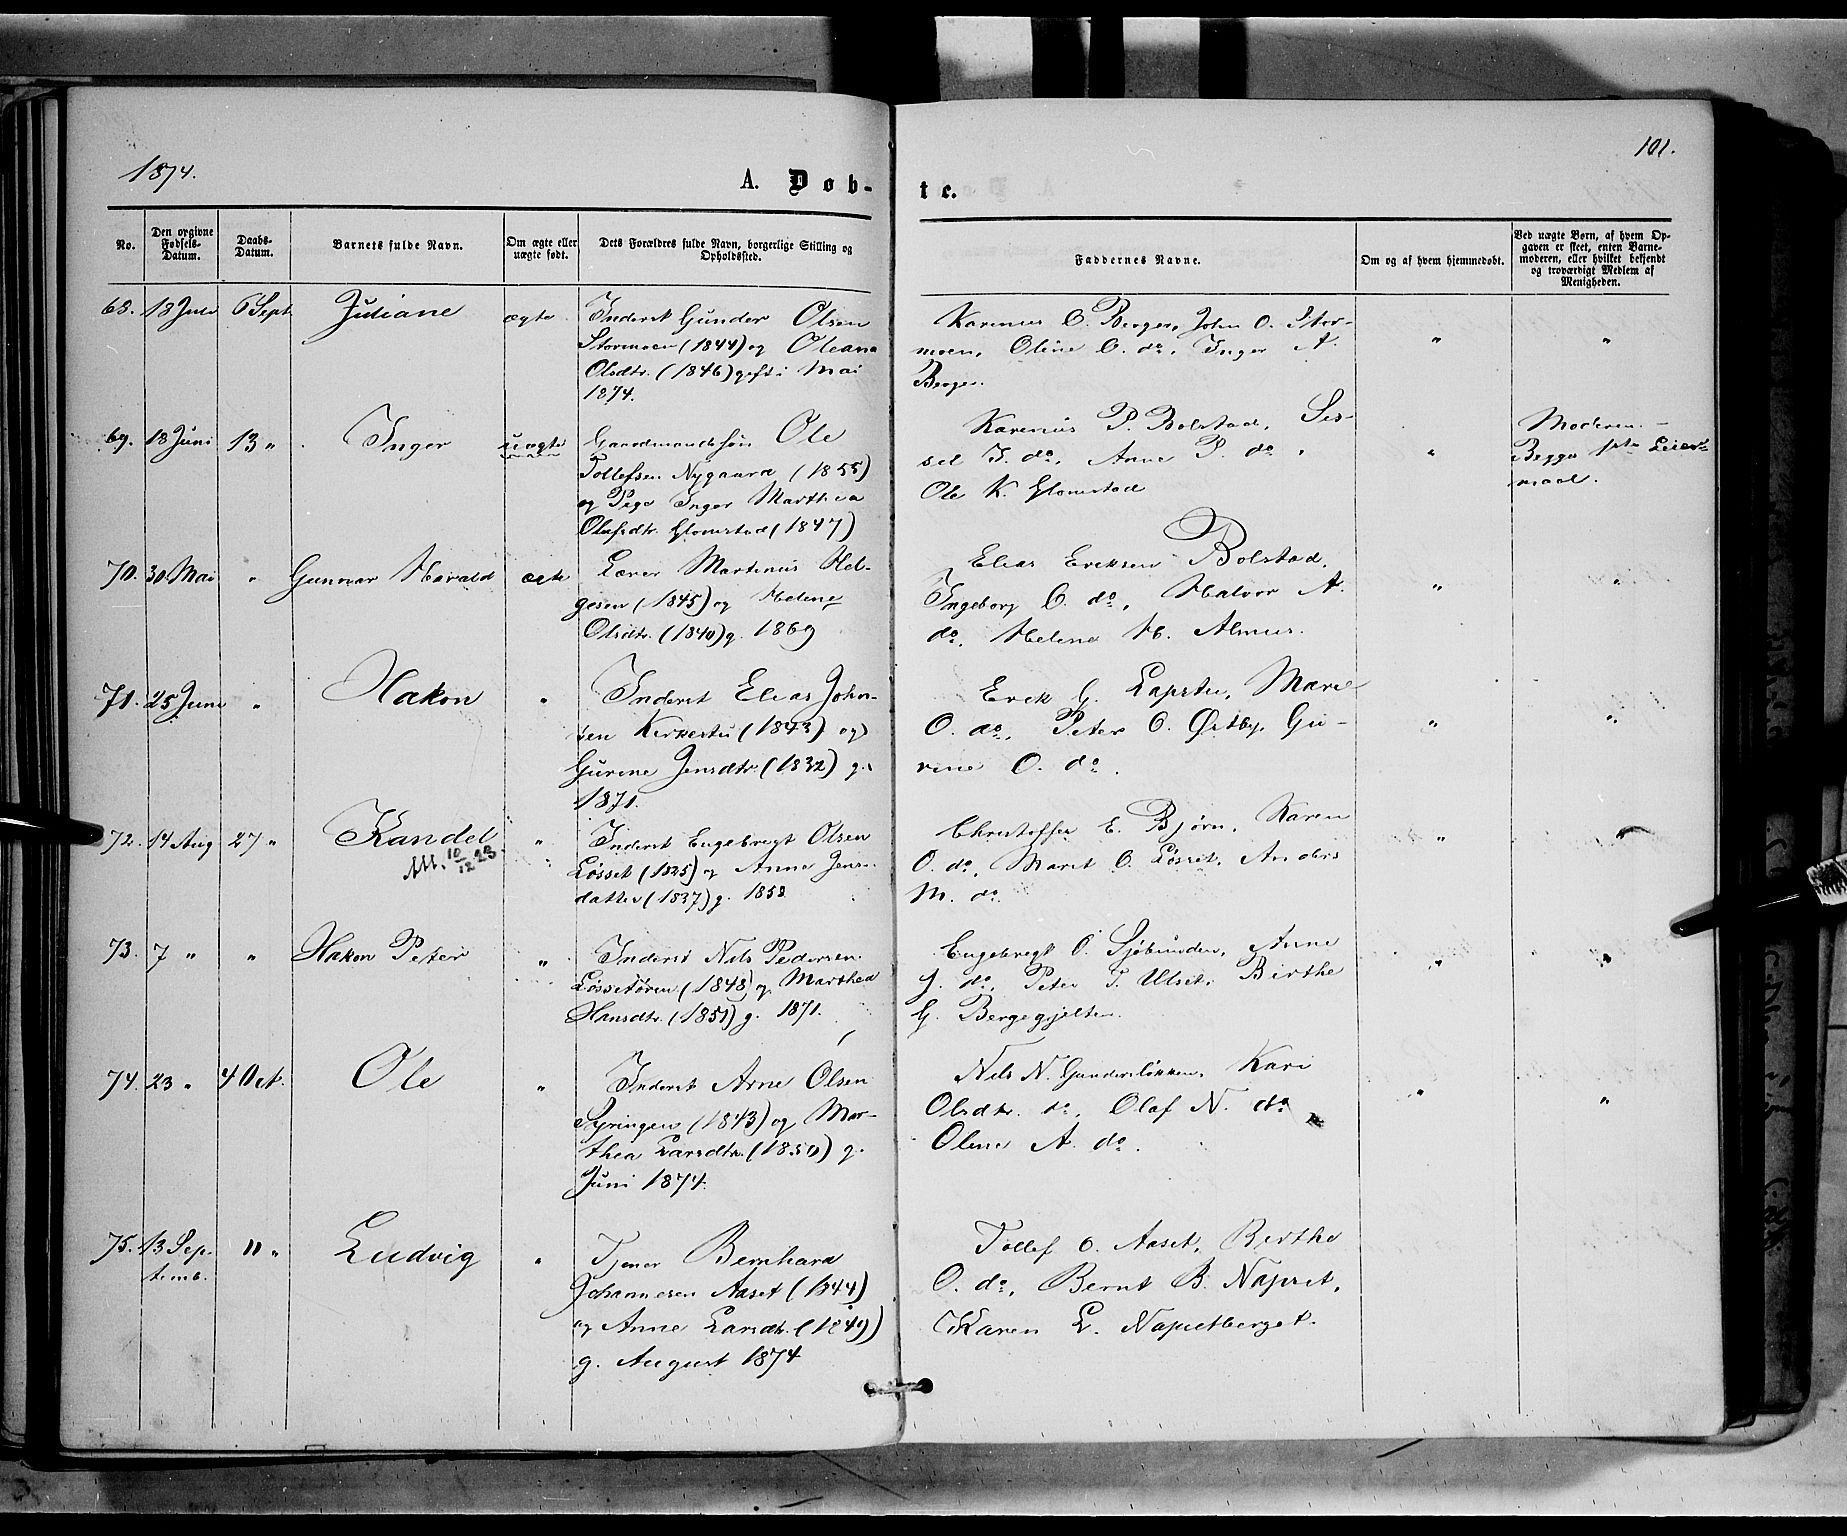 1874.
101.
A. Døb-
te.
No.
Den opgivne Fødsels-Datum.
Daabs-Datum.
Barnets fulde Navn.
Om ægte eller uægte født.
Dets Forældres fulde Navn, borgerlige Stilling og Opholdssted.
Faddernes Navne.
Om og af hvem hjemmedøbt.
Ved uægte Børn, af hvem Opgaven er skeet, enten Barnemoderen, eller hvilket bekjendt og troværdigt Medlem af Menigheden.
68. 18 Juli 6 Sept. Juliane ægte
Inderst Gunder Olsen
Stormoen (1844) og Oleana
Olsdtr. (1846) gift i Mai
1874.
Karenus O. Berger, John O. Stor-
moen, Oline O. do, Inger A.
Berger.
" "
69. 18 Juni 13 " Inger uægte
Gaardmandssøn Ole
Tollefsen Nygaard (1855)
og Pige Inger Marthea
Olufsdtr. Glomstad (1847)
Karenus P. Bolstad, Sis-
sel J. do, Anne P. do,
Ole K. Glomstad
"
Moderen.-
Begges 1ste Leier-
maal.
70. 30 Mai " Gunnar Harald ægte
Lærer Martinus Hel-
gesen (1845) og Helene
Olsdtr. (1840) g. 1869
Elias Eriksen Bolstad,
Ingeborg O. do, Halvor A.
do, Helene H. Almus.
" "
71. 25 Juni " Hakon "
Inderst Elias John-
sen Kirkestu (1843) og
Gurine Jensdtr. (1832) g.
1871.
Erik G. Lapstu, Marie
O. do, Peter O. Østby, Gu-
rine O. do.
" "
72. 14 Aug 27 " Randel "
Att. 10/12 23.
Inderst Engebregt Olsen
Løsset (1825) og Anne Jens-
datter (1837) g. 1858
Christoffer E. Bjørn, Karen
O. do, Marit O. Løsset, Anders
M. do.
" "
73. 7 " " Hakon Peter "
Inderst Nils Pedersen
Løssetøren (1848) og Marthea
Hansdtr. (1851) g. 1871.
Engebregt O. Sjøbunden, Anne
J. do, Peter T. Ulset, Birthe
G. Bergegjelten.
" "
74. 23 " 4 Oct. Ole "
Inderst Arne Olsen
Syringen (1843) og Mar-
thea Larsdtr. (1850) g.
Juni 1874.
Nils N. Gundersløkken, Kari
Olsdtr. do, Olaf N. do
Oline A. do.
" "
75. 13 Sep- 11 " Ludvig "
temb.
Tjener Bernhard
Johannesen Aaset (1844)
og Anne Larsdtr. (1849)
g. August 1874
Tollef O. Aaset, Berthe
O. do, Bernt B. Næpset,
Karen L. Næpsetberget.